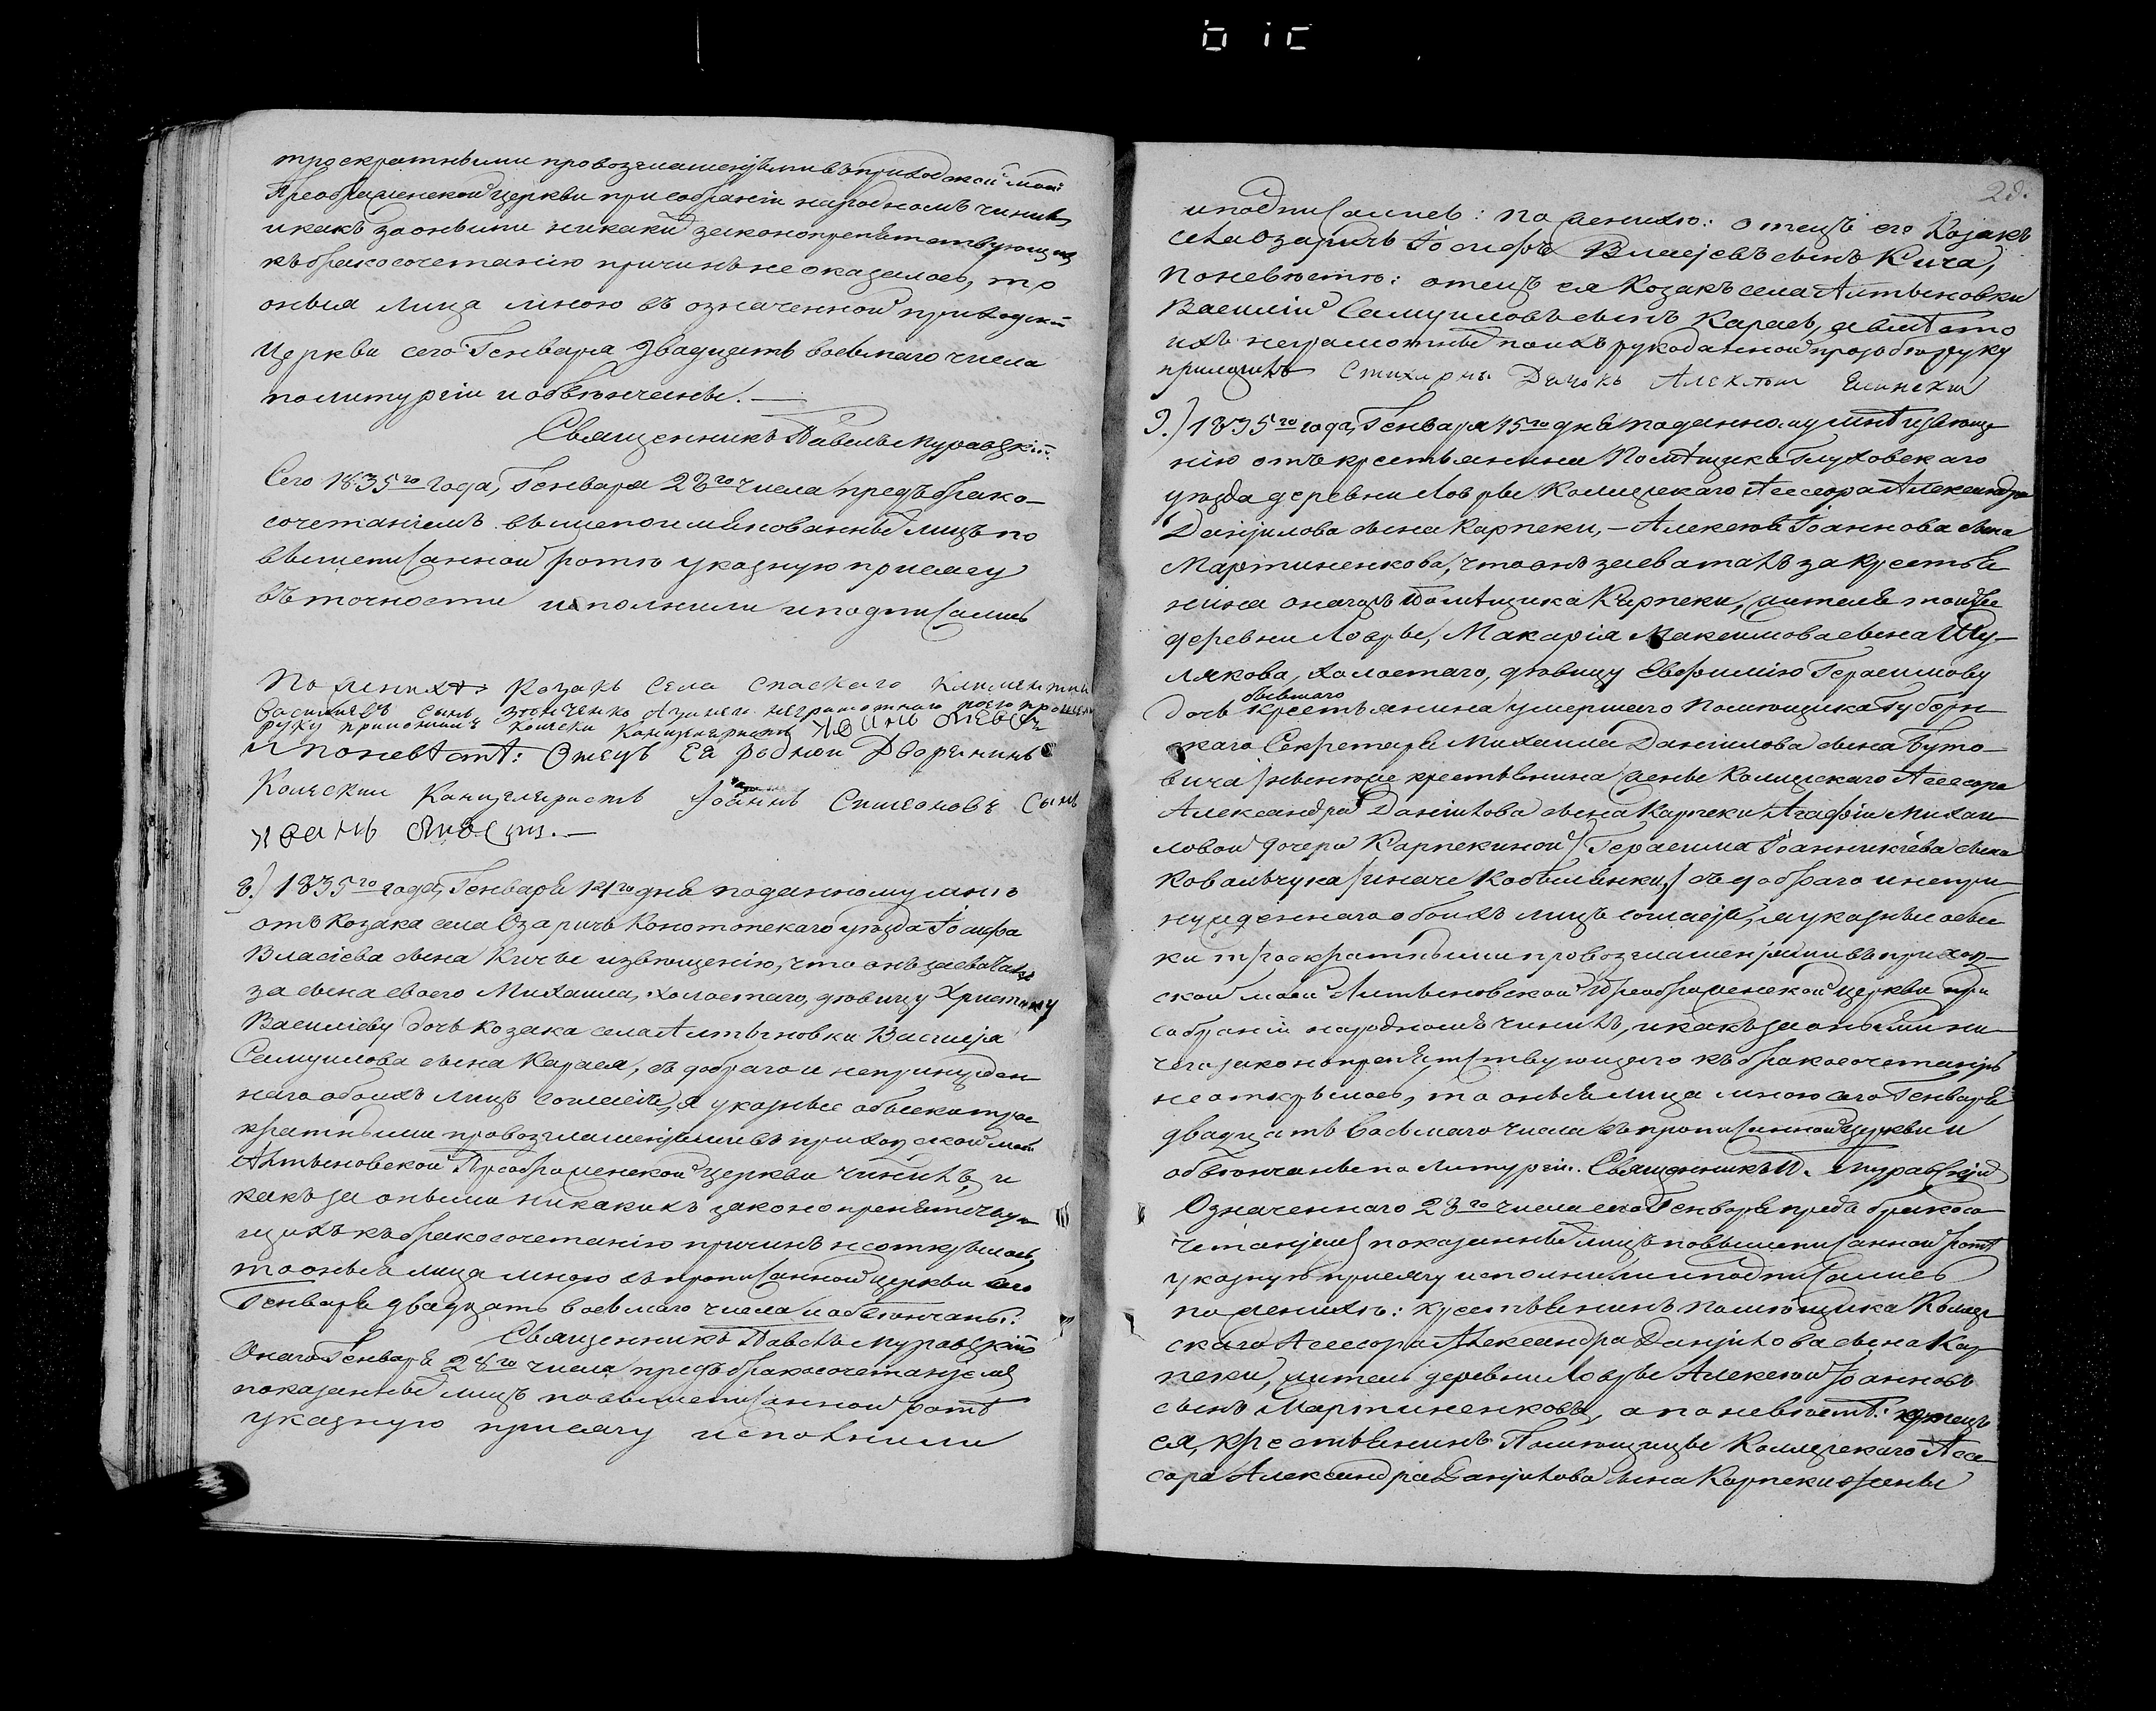 троекратными провозглашеніями въ приходской моей
Преображенской церкви при собраніи народномъ чинилъ,
и какъ за оными никакихъ законопрепятствующихъ
къ бракосочетанію причинъ не оказалось, то
оныя лица мною въ означенной приходской
церкви сего Генваря двадцать восьмаго числа
по литургіи и обвѣнчаны.—
Священникъ Павелъ Муравскій.
Сего 1835го года, Генваря 28го числа предъ брако-
сочетаніемъ вышепоименованныхъ лицъ по
вышеписанной формѣ указную присягу
въ точности исполнили и подписались
По женихѣ: Козакъ села Спаскаго
Василіевъ сынъ а за него неграмотнаго по его прошенію
руку приложилъ Канцеляристъ
и по невѣстѣ: Отецъ Ея родной Дворянинъ
Канцеляристъ Іоаннъ Симеоновъ Сынъ
8.) 1835го года, Генваря 14го дня по данному мнѣ
отъ Козака села Озаричъ Конотопскаго уѣзда Іосифа
Власіева сына Кичи извѣщенію, что онъ засваталъ
за сына своего Михаила, холостаго, дѣвицу Христину
Василіеву дочь козака села Алтыновки Василія
Самуилова сына Карася, съ добраго и непринужден-
наго обоихъ лицъ согласія, я указные обыски трое-
кратными провозглашеніями въ приходской моей
Алтыновской Преображенской церкви чинилъ, и
какъ за оными никакихъ законопрепятствую-
щихъ къ бракосочетанію причинъ не открылось,
то оныя лица мною въ прописанной церкви сего
Генваря двадцать восьмаго числа и обвѣнчаны.
Священникъ Павелъ Муравскій
Онаго Генваря 28го числа предъ бракосочетаніемъ
показанныхъ лицъ по вышеписанной формѣ
указную присягу исполнили
28.
и подписались: по женихѣ: отецъ его Козакъ
села Озаричъ Іосифъ Власіевъ сынъ Кича,
по невѣстѣ: отецъ ея Козакъ села Алтыновки
Василій Самуиловъ сынъ Карась, а вмѣсто
ихъ неграмотныхъ по ихъ рукоданной прозьбѣ руку
приложилъ Стихарны Дьячокъ Алексѣй
9.) 1835го года, Генваря 15го дня по данному мнѣ извѣще-
нію отъ крестьянина Помѣщика Глуховскаго
уѣзда деревни Лобры Колежскаго Асесора Александра
Даніилова сына Карпеки,— Алексѣя Іоаннова сына
Мартиненкова, что онъ засваталъ за крестья-
нина онагожъ Помѣщика Карпеки, жителя тойже
деревни Лобры, Макарія Максимова сына Шу-
лякова, холостаго, дѣвицу Евфимію Герасимову
дочь бывшаго крестьянина умершаго Помѣщика Губерн-
скаго Секретаря Михаила Даніилова сына Буто-
вича /нынѣже крестьянина жены Колежскаго Асесора
Александра Даніилова сына Карпеки Агафіи Михаи-
ловой дочери Карпекиной/ Герасима Іоанникіева сына
Ковальчука /иначе Кобылянки,/ съ добраго и непри-
нужденнаго обоихъ лицъ согласія, я указные обыс-
ки троекратными провозглашеніями въ приход-
ской моей Алтыновской Преображенской церкви при
собраніи народномъ чинилъ, и какъ за оными ни-
чего законопрепятствующаго къ бракосочетанію
не открылось, то оныя лица мною сего Генваря
двадцать восьмаго числа въ прописанной церкви и
обвѣнчаны по Литургіи. Священникъ П. Муравскій
Означеннаго 28го числа сего Генваря предъ бракосо-
четаніемъ показанныхъ лицъ по вышеписанной формѣ
указную присягу исполнили и подписались
по женихѣ: крестьянинъ помѣщика Колеж-
скаго Асесора Александра Даніилова сына Кар-
пеки, житель деревни Лобры Алексѣй Іоанновъ
сынъ Мартиненковъ, а по невѣстѣ: отецъ
ея, крестьянинъ Помѣщицы Колежскаго Асе-
сора Александра Даніилова сына Карпеки жены